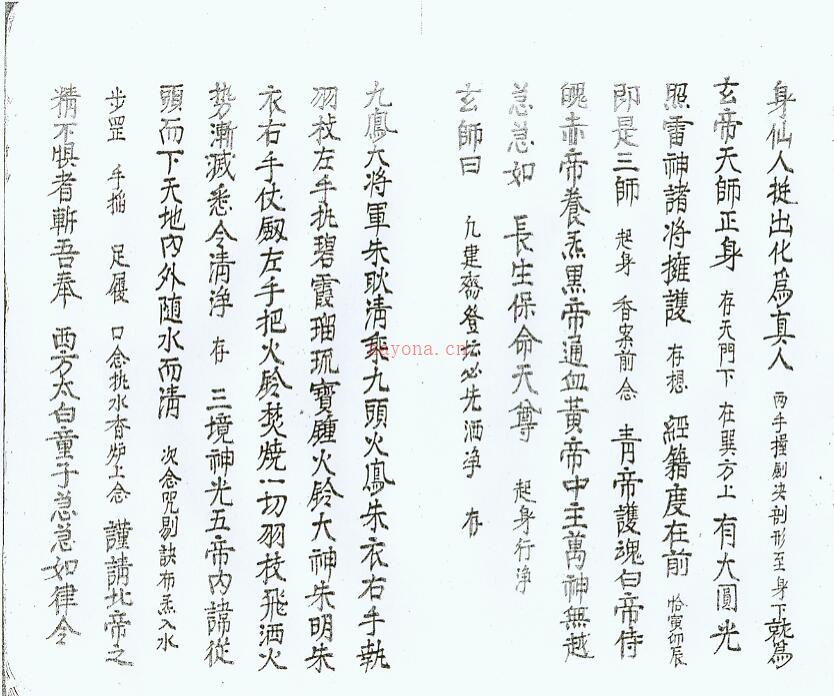 身仙人挺出化爲真人 兩手握劍決剖形至身下就爲
玄帝天師正身 存天門下 在巽方上 有大圓光
照雷神諸将擁護 存想 經籍度在前 恰寅卯辰
即是三師 起身 香案前念 青帝護魂白帝侍
魄赤帝養炁黑帝通血黃帝中主萬神無越
急急如 長生保命天尊 起身行净
玄師曰 凢建齋登坛必先洒净 存
九鳳大将軍朱耿清乘九頭火鳳朱衣右手執
羽枝左手执碧霞瑠琉寶鍾火鈴大神朱明朱
衣右手仗劔左手把火鈴焚燒一切羽枝飛洒火
势漸滅悉令清净 存 三境神光五帝内諱從
頭而下天地内外随水而清 次念咒剔訣布炁入水
步罡 手掐 足履 口念执水香炉上念 謹請北帝之
精不惧者斬吾奉 西方太白童子急急如律令
bayona.cn